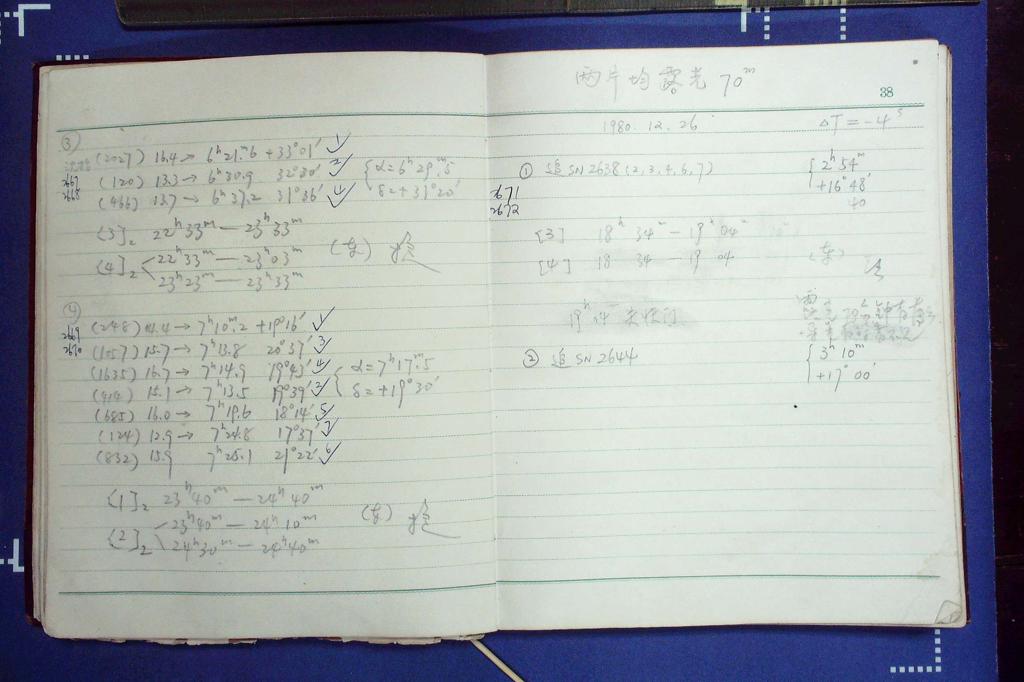 ③
(2027) 16.4 → 6ʰ21.ᵐ6 +33°01′ 1
2667 (120) 13.3 → 6ʰ30.9 32°30′ 2
2668 (466) 13.7 → 6ʰ37.2 31°36′ 4
{ α=6ʰ29ᵐ.5
δ=+31°20′
[3]₂ 22ʰ33ᵐ — 23ʰ33ᵐ
[4]₂ 22ʰ33ᵐ — 23ʰ03ᵐ
23ʰ23ᵐ — 23ʰ33ᵐ
④
2669 (248) 14.4 → 7ʰ10ᵐ.2 +19°16′ 1
2670 (1057) 15.7 → 7ʰ13.8 20°37′ 3
(1635) 16.7 → 7ʰ14.9 19°43′ 4
(414) 15.1 → 7ʰ13.5 19°39′ 2
(685) 16.0 → 7ʰ19.6 18°14′ 5
(124) 12.9 → 7ʰ24.8 17°37′ 7
(832) 15.9 7ʰ25.1 21°22′ 6
{ α=7ʰ17ᵐ.5
δ=+19°30′
[1]₂ 23ʰ40ᵐ — 24ʰ40ᵐ
[2]₂ 23ʰ40ᵐ — 24ʰ10ᵐ
24ʰ30ᵐ — 24ʰ40ᵐ
两片均露光 70ᵐ
38
1980. 12. 26 ΔT = -4ˢ
① 追 SN 2638 (2,3,4,6,7) { 2ʰ54ᵐ
+16°48′
40
2671
2672
[3] 18ʰ 34ᵐ — 19ʰ 04ᵐ
[4] 18 34 — 19 04 (东)
② 追 SN 2644 { 3ʰ10ᵐ
+17°00′